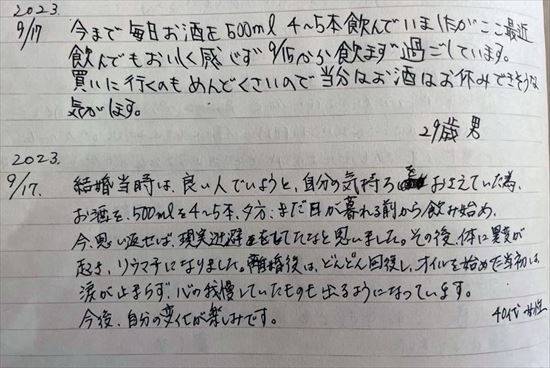 2023.
9/17 今まで毎日お酒を500ml 4~5本飲んでいましたがここ最近
飲んでもおいしく感じず9/15から飲まず過ごしています。
買いに行くのもめんどくさいので当分はお酒はお休みできそうな
気がします。
29歳 男
2023.
9/17. 結婚当時は、良い人でいようと、自分の気持ちをおさえていた為、
お酒を、500mlを4~5本、夕方、まだ日が暮れる前から飲み始め、
今、思い返せば、現実逃避をしてたなと思いました。その後、体に異変が
起き、リウマチになりました。離婚後は、どんどん回復し、オイルを始めた当初は、
涙が止まらず、心の我慢していたものも出るようになっています。
今後、自分の変化が楽しみです。
40代 女性